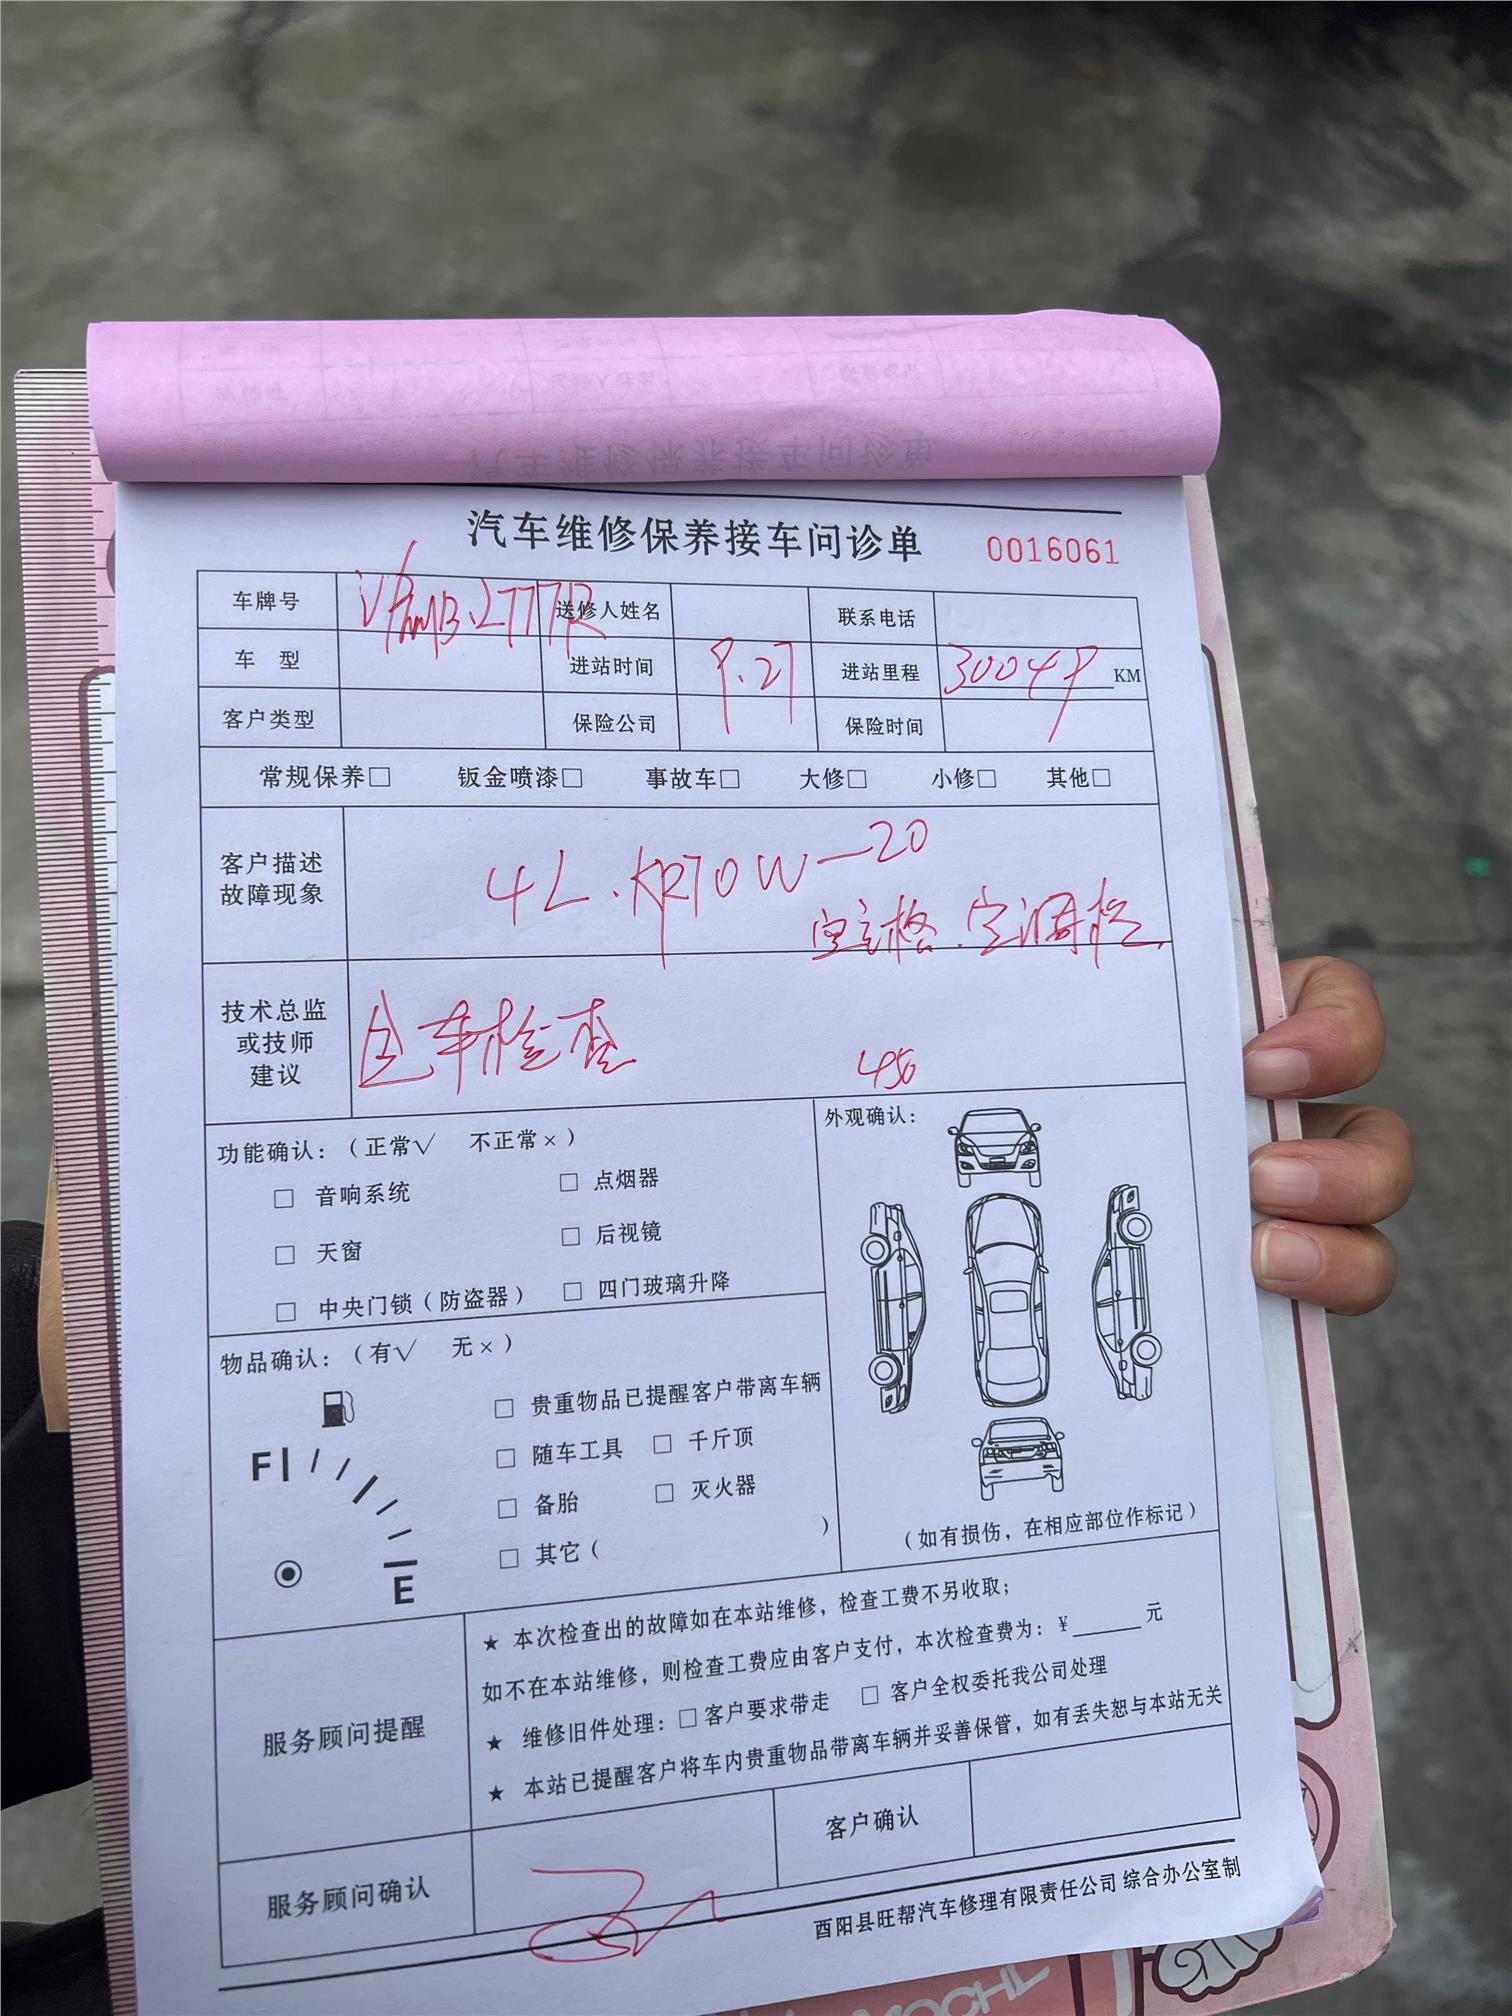 汽车维修保养接车问诊单 0016061
车牌号 沪 送修人姓名 联系电话
车 型 进站时间 9.27 进站里程 30049 KM
客户类型 保险公司 保险时间
常规保养□ 钣金喷漆□ 事故车□ 大修□ 小修□ 其他□
客户描述
故障现象
4L. W-20
空调格
技术总监
或技师
建议
全车检查
450
功能确认：（正常√ 不正常×）
□ 音响系统 □ 点烟器
□ 天窗 □ 后视镜
□ 中央门锁（防盗器） □ 四门玻璃升降
外观确认：
（如有损伤，在相应部位作标记）
物品确认：（有√ 无×）
F
E
□ 贵重物品已提醒客户带离车辆
□ 随车工具 □ 千斤顶
□ 备胎 □ 灭火器
□ 其它（ ）
服务顾问提醒
★ 本次检查出的故障如在本站维修，检查工费不另收取；
如不在本站维修，则检查工费应由客户支付，本次检查费为：¥______元
★ 维修旧件处理：□客户要求带走 □ 客户全权委托我公司处理
★ 本站已提醒客户将车内贵重物品带离车辆并妥善保管，如有丢失恕与本站无关
服务顾问确认 客户确认
酉阳县旺帮汽车修理有限责任公司 综合办公室制